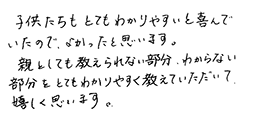 子供たちもとてもわかりやすいと喜んで
いたので、よかったと思います。
親としても教えられない部分、わからない
部分をとてもわかりやすく教えていただいて、
嬉しく思います。